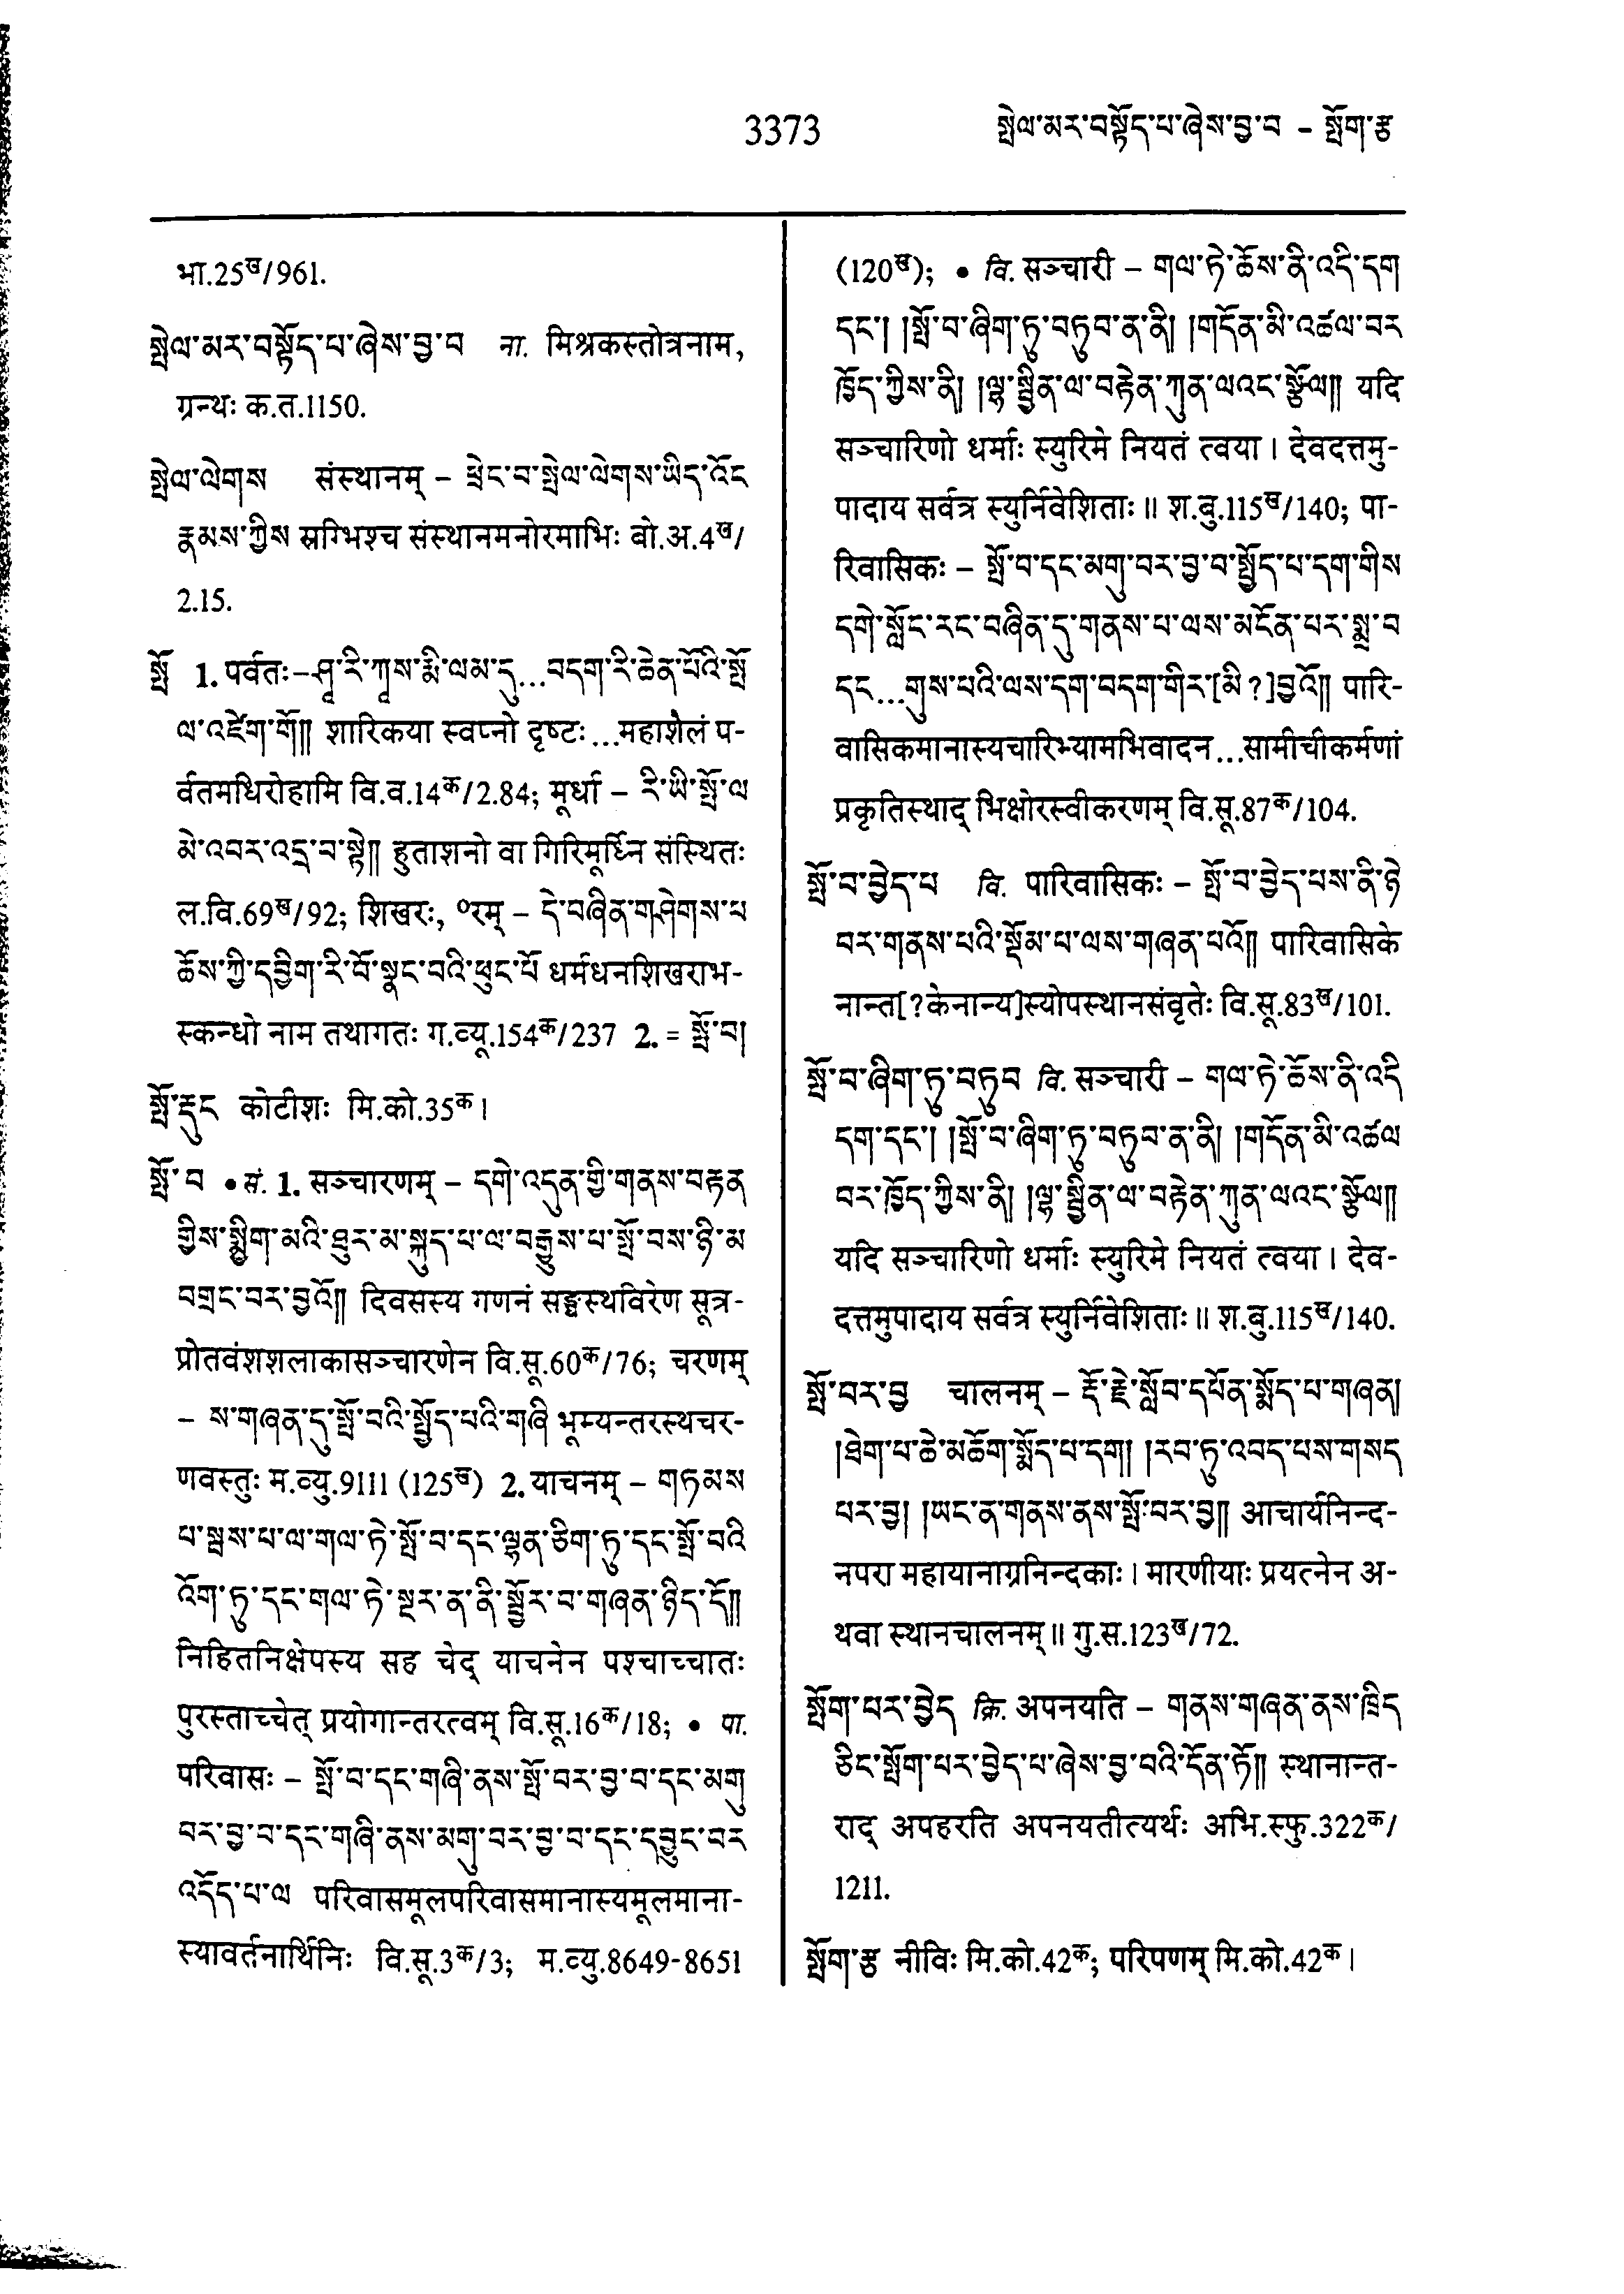 3373
སྤེལ་མར་བསྟོད་པ་ཞེས་བྱ་བ – སྤོག་རྩ
भा.25ख/961.
སྤེལ་མར་བསྟོད་པ་ཞེས་བྱ་བ ना. मिश्रकस्तोत्रनाम,
ग्रन्थः क.त.1150.
སྤེལ་ལེགས संस्थानम् – ཕྲེང་བ་སྤེལ་ལེགས་ཡིད་འོང
རྣམས་ཀྱིས स्रग्भिश्च संस्थानमनोरमाभिः बो.अ.4ख/
2.15.
སྤོ 1. पर्वतः–ཤཱ་རི་ཀཱས་རྨི་ལམ་དུ...བདག་རི་ཆེན་པོའི་སྤོ
ལ་འཛེག་གོ།། शारिकया स्वप्नो दृष्टः...महाशैलं प-
र्वतमधिरोहामि वि.व.14क/2.84; मूर्धा – རི་ཡི་སྤོ་ལ
མེ་འབར་འདྲ་བ་སྟེ།། हुताशनो वा गिरिमूर्ध्नि संस्थितः
ल.वि.69ख/92; शिखरः, ०रम् – དེ་བཞིན་གཤེགས་པ
ཆོས་ཀྱི་དབྱིག་རི་བོ་སྣང་བའི་ཕུང་པོ धर्मधनशिखराभ-
स्कन्धो नाम तथागतः ग.व्यू.154क/237 2. = སྤོ་བ།
སྤོ་རྡུང कोटीशः मि.को.35क।
སྤོ་བ • सं. 1. सञ्चारणम् – དགེ་འདུན་གྱི་གནས་བརྟན
གྱིས་སྨྱིག་མའི་ཐུར་མ་སྐུད་པ་ལ་བརྒྱུས་པ་སྤོ་བས་ཉི་མ
བགྲང་བར་བྱའོ།། दिवसस्य गणनं सङ्घस्थविरेण सूत्र-
प्रोतवंशशलाकासञ्चारणेन वि.सू.60क/76; चरणम्
– ས་གཞན་དུ་སྤོ་བའི་སྤྱོད་པའི་གཞི भूम्यन्तरस्थचर-
णवस्तुः म.व्यु.9111 (125ख) 2. याचनम् – གཏམས
པ་སྦས་པ་ལ་གལ་ཏེ་སྤོ་བ་དང་ལྷན་ཅིག་ཏུ་དང་སྤོ་བའི
འོག་ཏུ་དང་གལ་ཏེ་སྔར་ན་ནི་སྦྱོར་བ་གཞན་ཉིད་དོ།།
निहितनिक्षेपस्य सह चेद् याचनेन पश्चाच्चातः
पुरस्ताच्चेत् प्रयोगान्तरत्वम् वि.सू.16क/18; • पा.
परिवासः – སྤོ་བ་དང་གཞི་ནས་སྤོ་བར་བྱ་བ་དང་མགུ
བར་བྱ་བ་དང་གཞི་ནས་མགུ་བར་བྱ་བ་དང་དབྱུང་བར
འདོད་པ་ལ परिवासमूलपरिवासमानास्यमूलमाना-
स्यावर्तनार्थिनिः वि.सू.3क/3; म.व्यु.8649-8651
(120ख); • वि. सञ्चारी – གལ་ཏེ་ཆོས་ནི་འདི་དག
དང་། །སྤོ་བ་ཞིག་ཏུ་བཏུབ་ན་ནི། །གདོན་མི་འཚལ་བར
ཁྱོད་ཀྱིས་ནི། །ལྷ་སྦྱིན་ལ་བརྟེན་ཀུན་ལའང་སྩོལ།། यदि
सञ्चारिणो धर्माः स्युरिमे नियतं त्वया। देवदत्तमु-
पादाय सर्वत्र स्युर्निवेशिताः॥ श.बु.115ख/140; पा-
रिवासिकः – སྤོ་བ་དང་མགུ་བར་བྱ་བ་སྤྱོད་པ་དག་གིས
དགེ་སློང་རང་བཞིན་དུ་གནས་པ་ལས་མངོན་པར་སྨྲ་བ
དང...གུས་པའི་ལས་དག་བདག་གིར་[མི་?]བྱའོ།། पारि-
वासिकमानास्यचारिभ्यामभिवादन...सामीचीकर्मणां
प्रकृतिस्थाद् भिक्षोरस्वीकरणम् वि.सू.87क/104.
སྤོ་བ་བྱེད་པ वि. पारिवासिकः – སྤོ་བ་བྱེད་པས་ནི་ཉེ
བར་གནས་པའི་སྡོམ་པ་ལས་གཞན་པའོ།། पारिवासिके
नान्त[?केनान्य]स्योपस्थानसंवृतेः वि.सू.83ख/101.
སྤོ་བ་ཞིག་ཏུ་བཏུབ वि. सञ्चारी – གལ་ཏེ་ཆོས་ནི་འདི
དག་དང་། །སྤོ་བ་ཞིག་ཏུ་བཏུབ་ན་ནི། །གདོན་མི་འཚལ
བར་ཁྱོད་ཀྱིས་ནི། །ལྷ་སྦྱིན་ལ་བརྟེན་ཀུན་ལའང་སྩོལ།།
यदि सञ्चारिणो धर्माः स्युरिमे नियतं त्वया। देव-
दत्तमुपादाय सर्वत्र स्युर्निवेशिताः॥ श.बु.115ख/140.
སྤོ་བར་བྱ चालनम् – རྡོ་རྗེ་སློབ་དཔོན་སྨོད་པ་གཞན།
།ཐེག་པ་ཆེ་མཆོག་སྨོད་པ་དག། །རབ་ཏུ་འབད་པས་གསད
པར་བྱ། །ཡང་ན་གནས་ནས་སྤོ་བར་བྱ།། आचार्यनिन्द-
नपरा महायानाग्रनिन्दकाः। मारणीयाः प्रयत्नेन अ-
थवा स्थानचालनम्॥ गु.स.123ख/72.
སྤོག་པར་བྱེད क्रि. अपनयति – གནས་གཞན་ནས་ཁྲིད
ཅིང་སྤོག་པར་བྱེད་པ་ཞེས་བྱ་བའི་དོན་ཏོ།། स्थानान्त-
राद् अपहरति अपनयतीत्यर्थः अभि.स्फु.322क/
1211.
སྤོག་རྩ नीविः मि.को.42क; परिपणम् मि.को.42क।